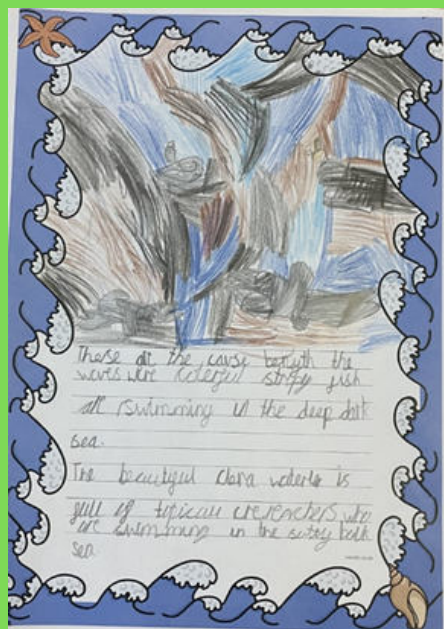 These are the cavse beneyth the
waves were colerful stripy fish
all swimming in the deep dark
sea.
The beautiful clera waterle is
full of tropicau creenchers who
are swimming in the sutey balk
sea.